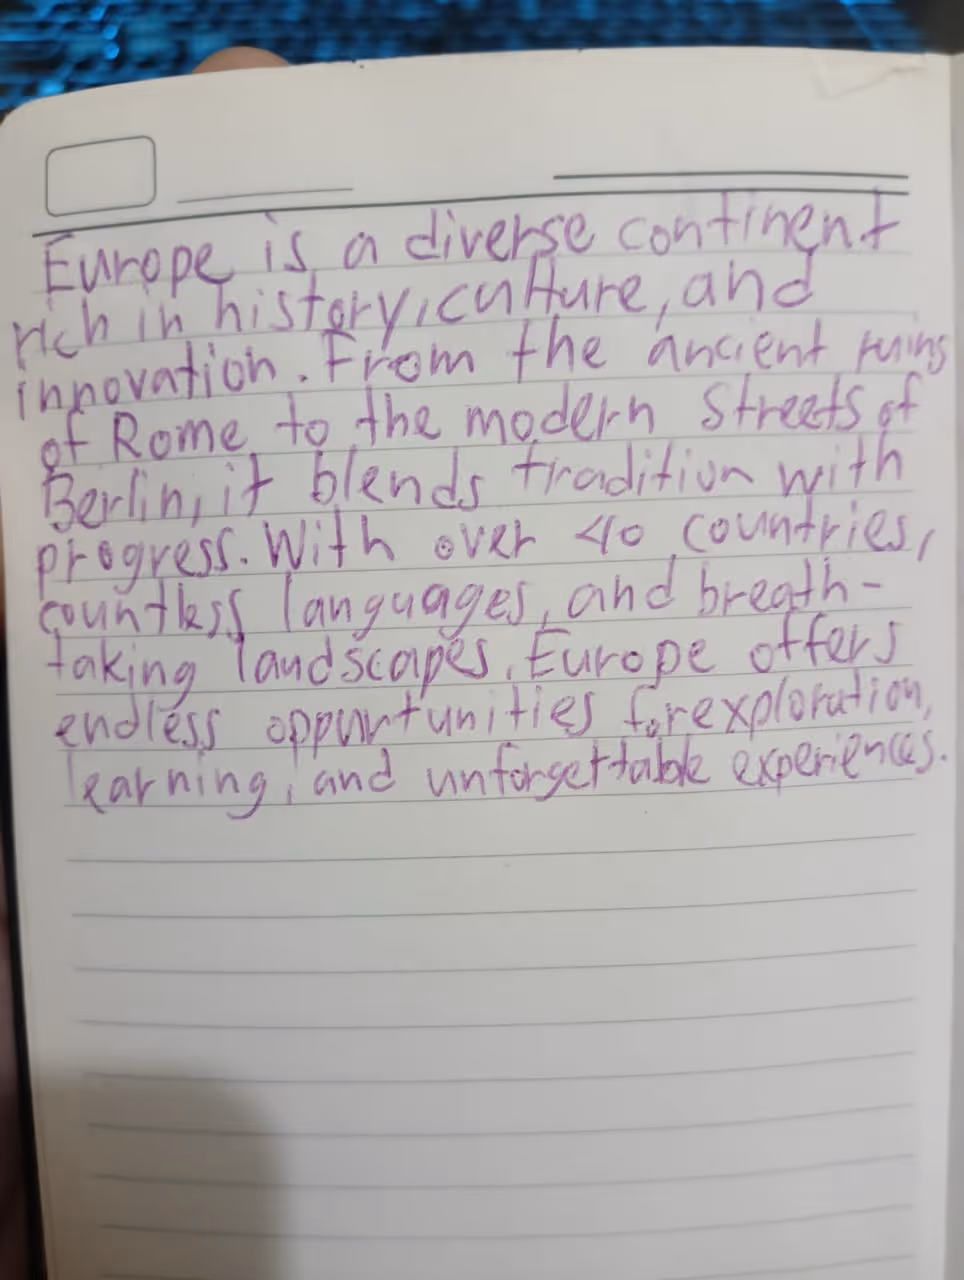 Europe is a diverse continent
rich in history, culture, and
innovation. From the ancient ruins
of Rome to the modern streets of
Berlin, it blends tradition with
progress. With over 40 countries,
countless languages, and breath-
taking landscapes, Europe offers
endless oppurtunities for exploration,
learning, and unforgettable experiences.